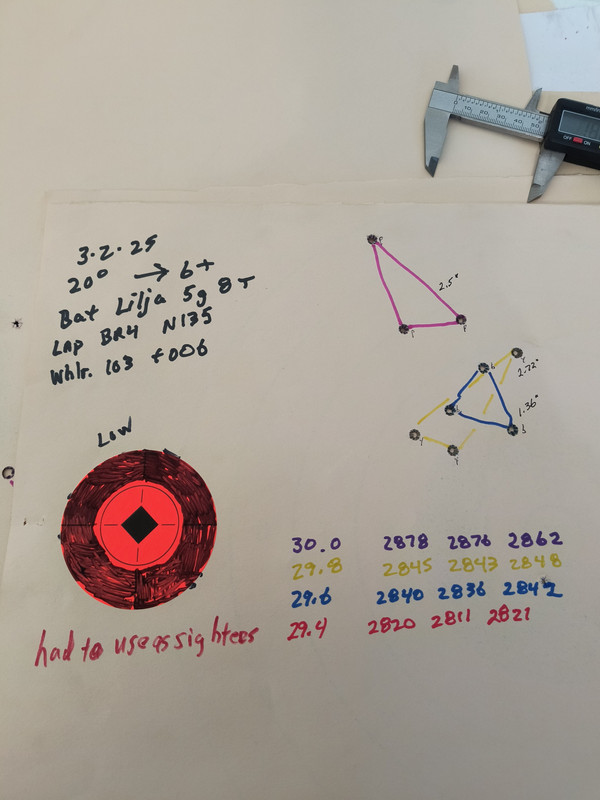 3-2-25
20° → 6+
Bat Lilja 5g 8T
Lap BR4 N135
Whlr. 103 +006
LOW
P
2.5"
P
P
b
Y
2.72"
b
1.36"
b
Y
Y
30.0 2878 2876 2862
29.8 2845 2843 2848
29.6 2840 2836 2842
29.4 2820 2811 2821
had to use as sighters
OFF ON